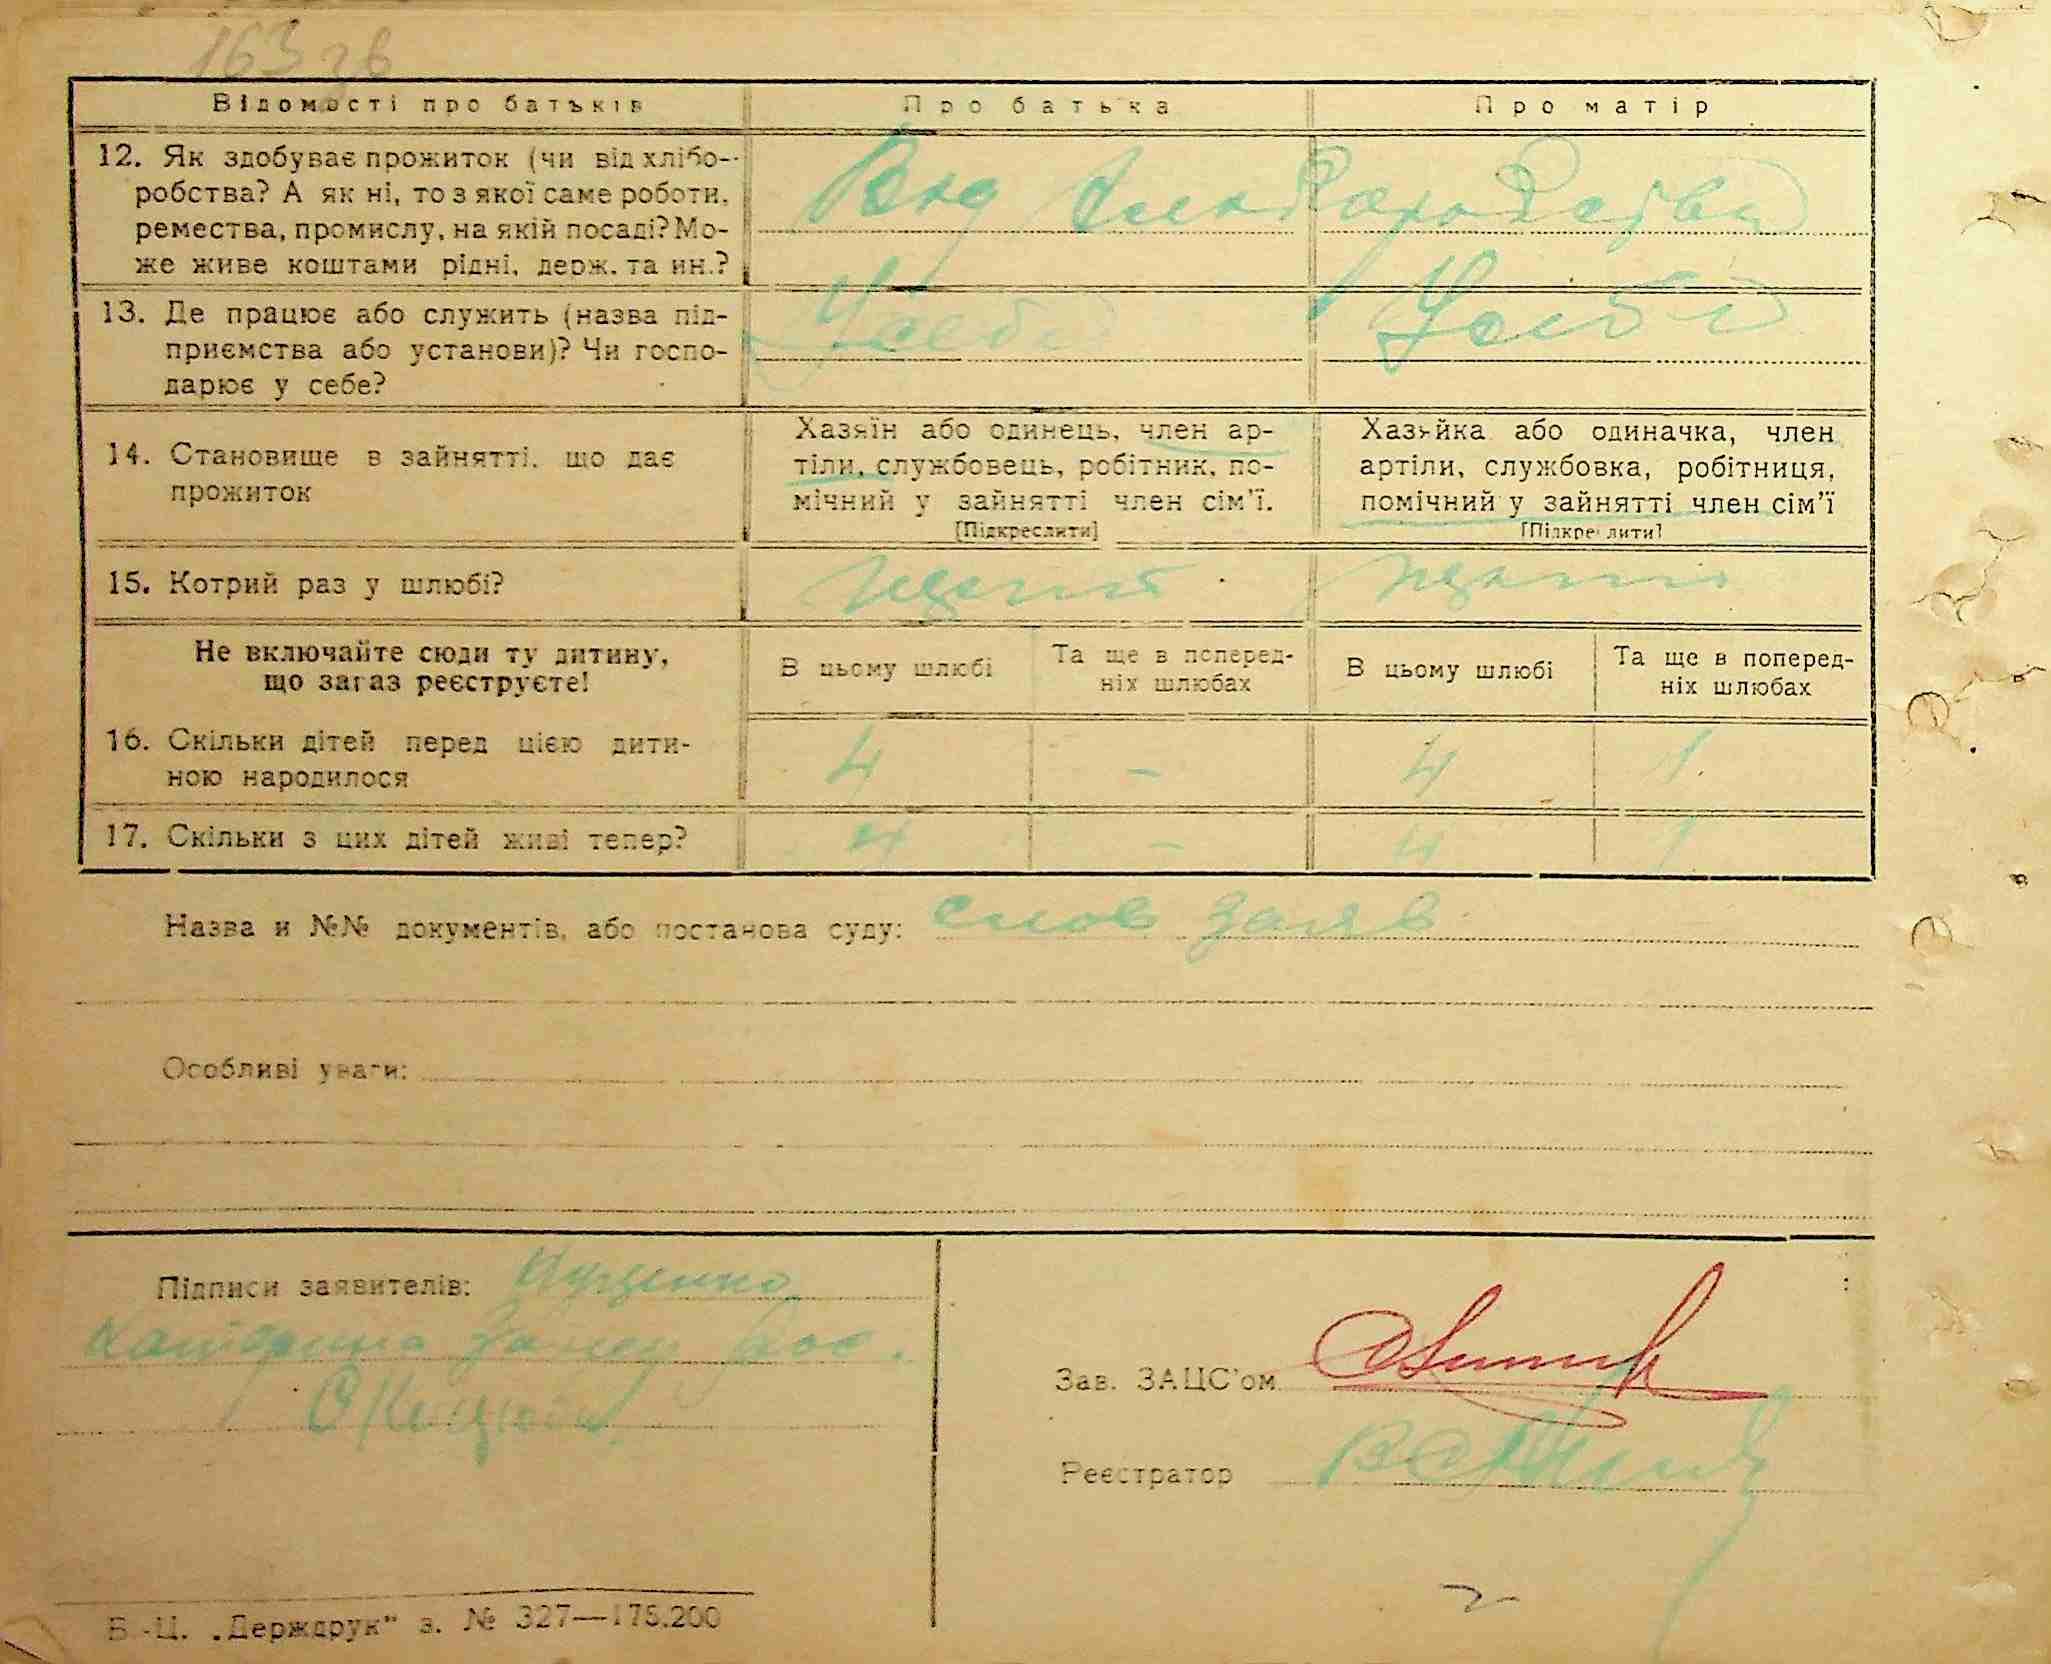 163 зв
Відомості про батьків Про батька Про матір
12. Як здобуває прожиток (чи від хлібо-
робства? А як ні, то з якої саме роботи,
ремества, промислу, на якій посаді? Мо-
же живе коштами рідні, держ. та ин.?
13. Де працює або служить (назва під-
приємства або установи)? Чи госпо-
дарює у себе?
У себе У себе
14. Становище в зайнятті, що дає
прожиток
Хазяїн або одинець, член ар-
тіли, службовець, робітник, по-
мічний у зайнятті член сім’ї.
[Підкреслити]
Хазяйка або одиначка, член
артіли, службовка, робітниця,
помічний у зайнятті член сім’ї
[Підкреслити]
15. Котрий раз у шлюбі?
Не включайте сюди ту дитину,
що зараз реєструєте!
В цьому шлюбі
Та ще в поперед-
ніх шлюбах
В цьому шлюбі
Та ще в поперед-
ніх шлюбах
16. Скільки дітей перед цією дити-
ною народилося
4 – 4 1
17. Скільки з цих дітей живі тепер?
4 – 4 1
Назва и №№ документів, або постанова суду: слов заяв
Особливі уваги:
Підписи заявителів:
Зав. ЗАЦС’ом
Реєстратор
Б.-Ц. „Держдрук“ з. № 327—175.200